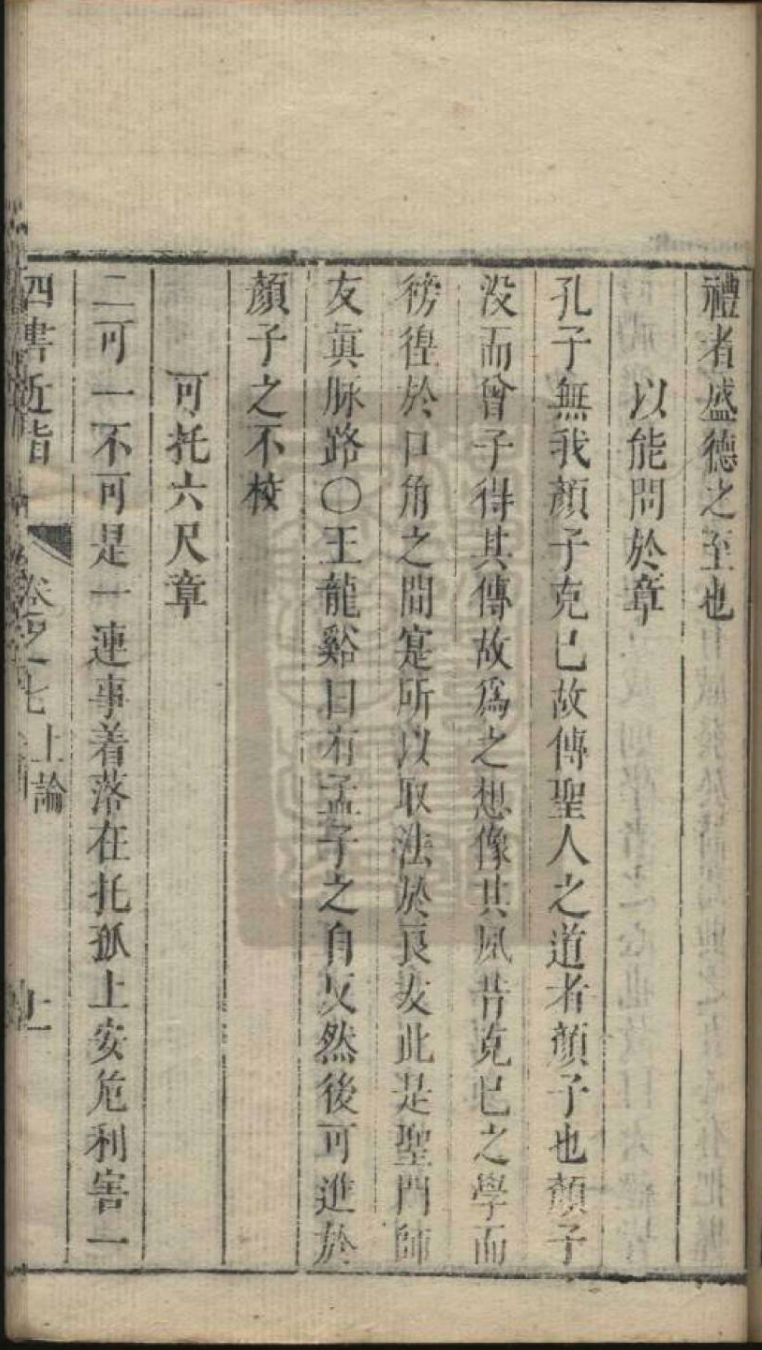 禮者盛德之至也
以能問於章
孔子無我顏子克已故傳聖人之道者顏子也顏子
沒而曾子得其傳故爲之想像其夙昔克已之學而
徬徨於口角之間寔所以取法於良友此是聖門師
友眞脉路〇王龍谿曰有孟子之自反然後可進於
顏子之不校
可托六尺章
二可一不可是一連事着落在托孤上安危利害一
四書近指 卷之七 上論